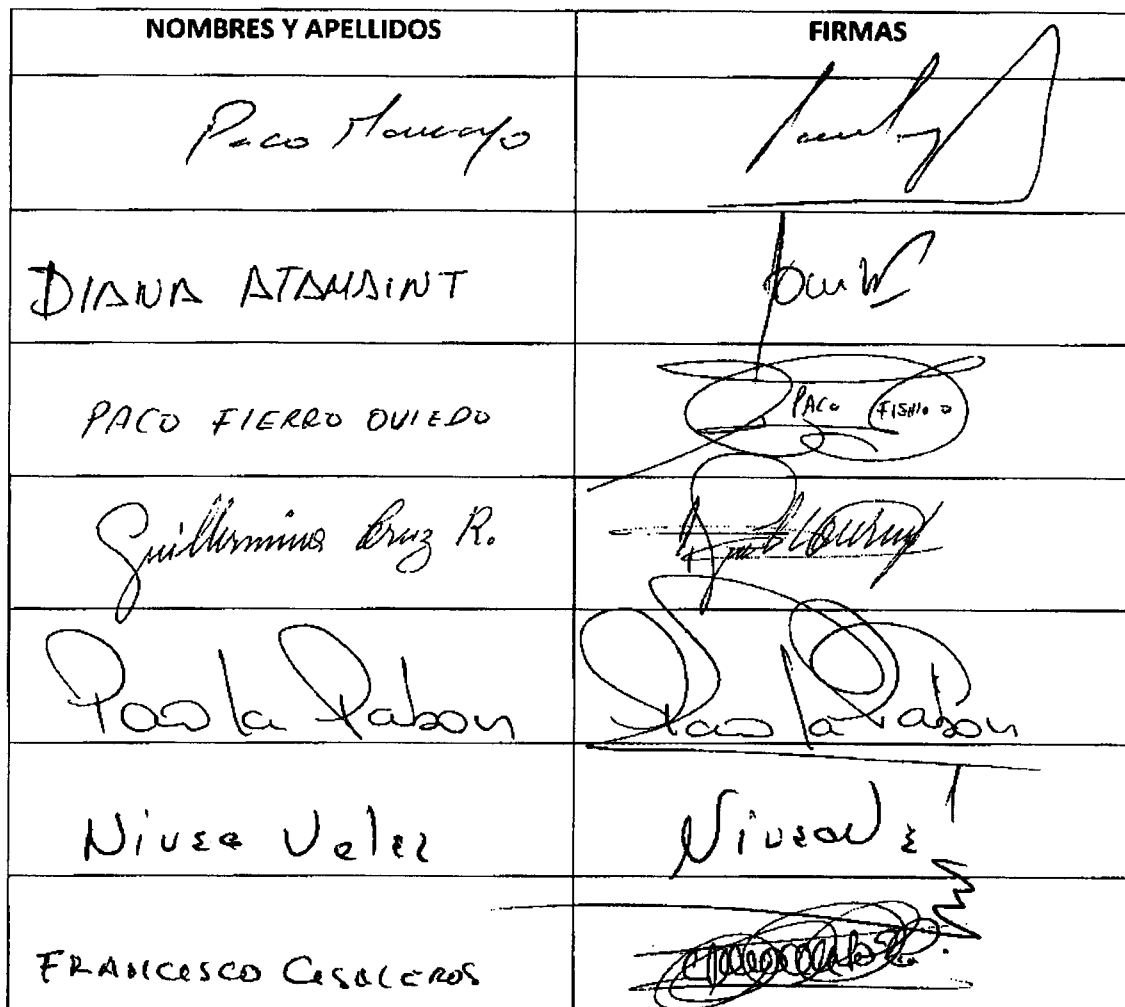 NOMBRES Y APELLIDOS FIRMAS
Paco Moncayo
DIANA ATAMAINT
PACO FIERRO OVIEDO PACO FIERRO O
Guillermina Cruz R.
Paola Pabon Paola Pabon
Nivea Velez Nivea V
FRANCESCO